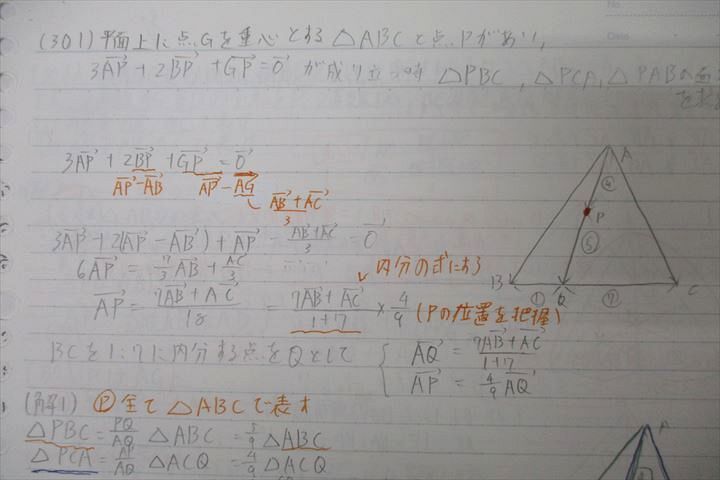 (301) 平面上に点Gを重心とする△ABCと点Pがあり、
3AP→ + 2BP→ + GP→ = 0→ が成り立つ時 △PBC, △PCA, △PABの面
を求
3AP→ + 2BP→ + GP→ = 0→
AP→ - AB→ AP→ - AG→
(AB→ + AC→)/3
3AP→ + 2(AP→ - AB→) + AP→ - (AB→ + AC→)/3 = 0→
6AP→ = 7/3 AB→ + AC→/3
内分の式にする
AP→ = (7AB→ + AC→)/18 = (7AB→ + AC→)/(1+7) × 4/9 (Pの位置を把握)
BCを1:7に内分する点をQとして
AQ→ = (7AB→ + AC→)/(1+7)
AP→ = 4/9 AQ→
A
④
P
⑤
B ① Q ⑦ C
(解1) Ⓟ 全て△ABCで表す
△PBC = PQ/AQ △ABC = 5/9 △ABC
△PCA = AP/AQ △ACQ = 4/9 △ACQ
A